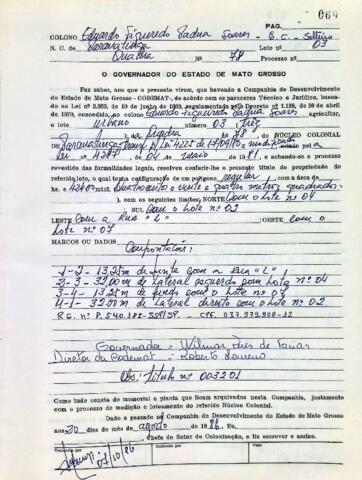 PÁG. 069
COLONO Eduardo Figueredo Padua Soares - E.C. - Solteiro
N. C. de Paranatinga Lote nº 03
Quadra 78 Processo nº
O GOVERNADOR DO ESTADO DE MATO GROSSO
Faz saber, aos que o presente virem, que havendo a Companhia de Desenvolvimento
do Estado de Mato Grosso - CODEMAT, de acôrdo com os pareceres Técnico e Jurídico, basea-
do na Lei nº 2.939, de junho de 1969, regulamentada pelo Decreto nº 1.138, de 30 de abril
de 1970, concedido, ao colono Eduardo Figueredo Padua Soares
agricultor,
o lote Urbano número 03 três
da Quadra 78, NÚCLEO COLONIAL
Paranatinga 4225 de 17/09/80 modificado pela
Lei nº 4387, de 04 de maio de 1981, e achando-se o processo
revestido das formalidades legais, resolvem conferir-lhe o presente título de propriedade
do referido lote, o qual tenha configuração de um polígono regular, com a área de
hs. e 424,00 mts2. Quatrocentos e vinte e quatro metros quadrados
), com os seguintes limites: NORTE Com o lote nº 04
SUL com o lote nº 02
LESTE Com a Rua "L" :OESTE com o
lote nº 07
MARCOS OU DADOS Confrontações:
1-2 - 13,25m de frente com a Rua "L"
2-3 - 32,00m de lateral esquerdo com lote nº 04
3-4 - 13,25m de fundo com o lote nº 07
4-1 - 32,00m de lateral direito com o lote nº 02
Governador =
Diretor da Codemat - Roberto Loureno
Obs: Título nº 003201
Como tudo consta do memorial e planta que ficam arquivados nesta Companhia, juntamente
com o processo de medição e loteamento do referido Núcleo Colonial.
Dado e passado na Companhia de Desenvolvimento do Estado de Mato Grosso
aos 20 dias do mês de agosto de 1986. Eu,
Chefe do Setor de Colonização, o fiz escrever e assino.
Transcrito por Conferido por Visto
07/10/86